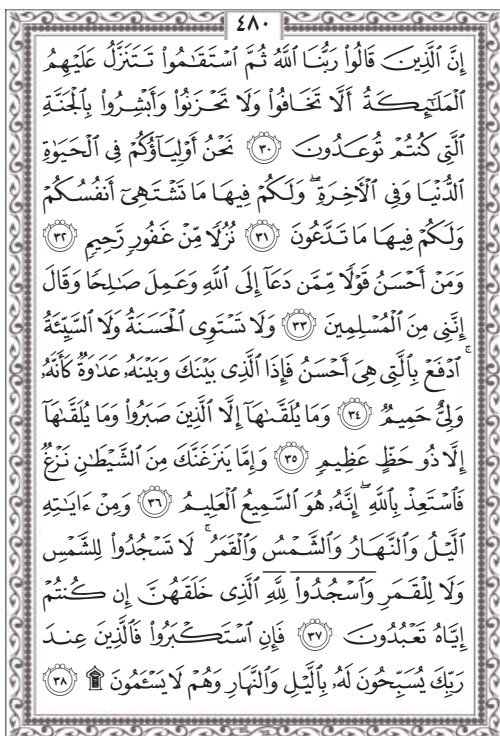 ٤٨٠
إِنَّ ٱلَّذِينَ قَالُوا۟ رَبُّنَا ٱللَّهُ ثُمَّ ٱسْتَقَٰمُوا۟ تَتَنَزَّلُ عَلَيْهِمُ
ٱلْمَلَٰٓئِكَةُ أَلَّا تَخَافُوا۟ وَلَا تَحْزَنُوا۟ وَأَبْشِرُوا۟ بِٱلْجَنَّةِ
ٱلَّتِى كُنتُمْ تُوعَدُونَ ٣٠ نَحْنُ أَوْلِيَآؤُكُمْ فِى ٱلْحَيَوٰةِ
ٱلدُّنْيَا وَفِى ٱلْءَاخِرَةِ ۖ وَلَكُمْ فِيهَا مَا تَشْتَهِىٓ أَنفُسُكُمْ
وَلَكُمْ فِيهَا مَا تَدَّعُونَ ٣١ نُزُلًا مِّنْ غَفُورٍ رَّحِيمٍ ٣٢
وَمَنْ أَحْسَنُ قَوْلًا مِّمَّن دَعَآ إِلَى ٱللَّهِ وَعَمِلَ صَٰلِحًا وَقَالَ
إِنَّنِى مِنَ ٱلْمُسْلِمِينَ ٣٣ وَلَا تَسْتَوِى ٱلْحَسَنَةُ وَلَا ٱلسَّيِّئَةُ ۚ
ٱدْفَعْ بِٱلَّتِى هِىَ أَحْسَنُ فَإِذَا ٱلَّذِى بَيْنَكَ وَبَيْنَهُۥ عَدَٰوَةٌ كَأَنَّهُۥ
وَلِىٌّ حَمِيمٌ ٣٤ وَمَا يُلَقَّىٰهَآ إِلَّا ٱلَّذِينَ صَبَرُوا۟ وَمَا يُلَقَّىٰهَآ
إِلَّا ذُو حَظٍّ عَظِيمٍ ٣٥ وَإِمَّا يَنزَغَنَّكَ مِنَ ٱلشَّيْطَٰنِ نَزْغٌ
فَٱسْتَعِذْ بِٱللَّهِ ۖ إِنَّهُۥ هُوَ ٱلسَّمِيعُ ٱلْعَلِيمُ ٣٦ وَمِنْ ءَايَٰتِهِ
ٱلَّيْلُ وَٱلنَّهَارُ وَٱلشَّمْسُ وَٱلْقَمَرُ ۚ لَا تَسْجُدُوا۟ لِلشَّمْسِ
وَلَا لِلْقَمَرِ وَٱسْجُدُوا۟ لِلَّهِ ٱلَّذِى خَلَقَهُنَّ إِن كُنتُمْ
إِيَّاهُ تَعْبُدُونَ ٣٧ فَإِنِ ٱسْتَكْبَرُوا۟ فَٱلَّذِينَ عِندَ
رَبِّكَ يُسَبِّحُونَ لَهُۥ بِٱلَّيْلِ وَٱلنَّهَارِ وَهُمْ لَا يَسْـَٔمُونَ ۩ ٣٨